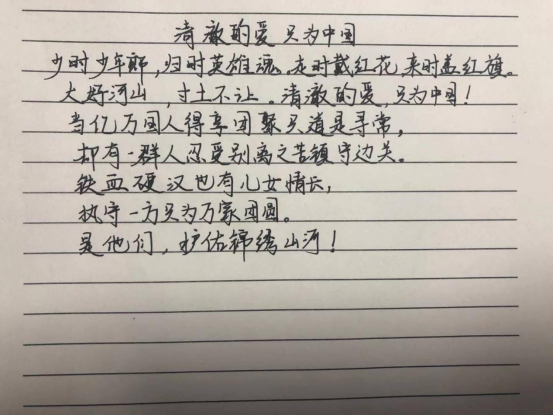 清澈的爱 只为中国
少时少年郎,归时英雄魂,走时戴红花,来时盖红旗。
大好河山,寸土不让。清澈的爱,只为中国!
当亿万国人得享团聚只道是寻常,
却有一群人忍受别离之苦镇守边关。
铁血硬汉也有儿女情长,
执守一方只为万家团圆。
是他们,护佑锦绣山河!